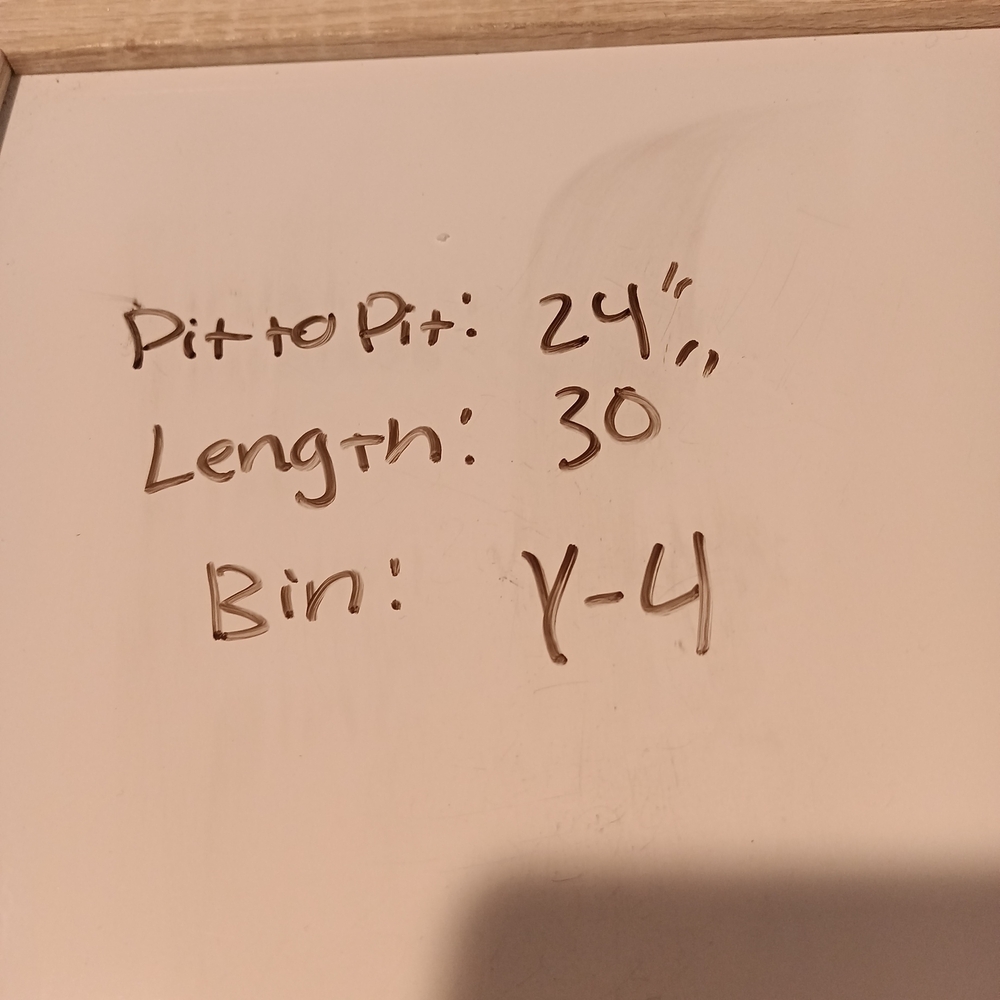 Pit to Pit: 24"
Length: 30"
Bin: Y-4